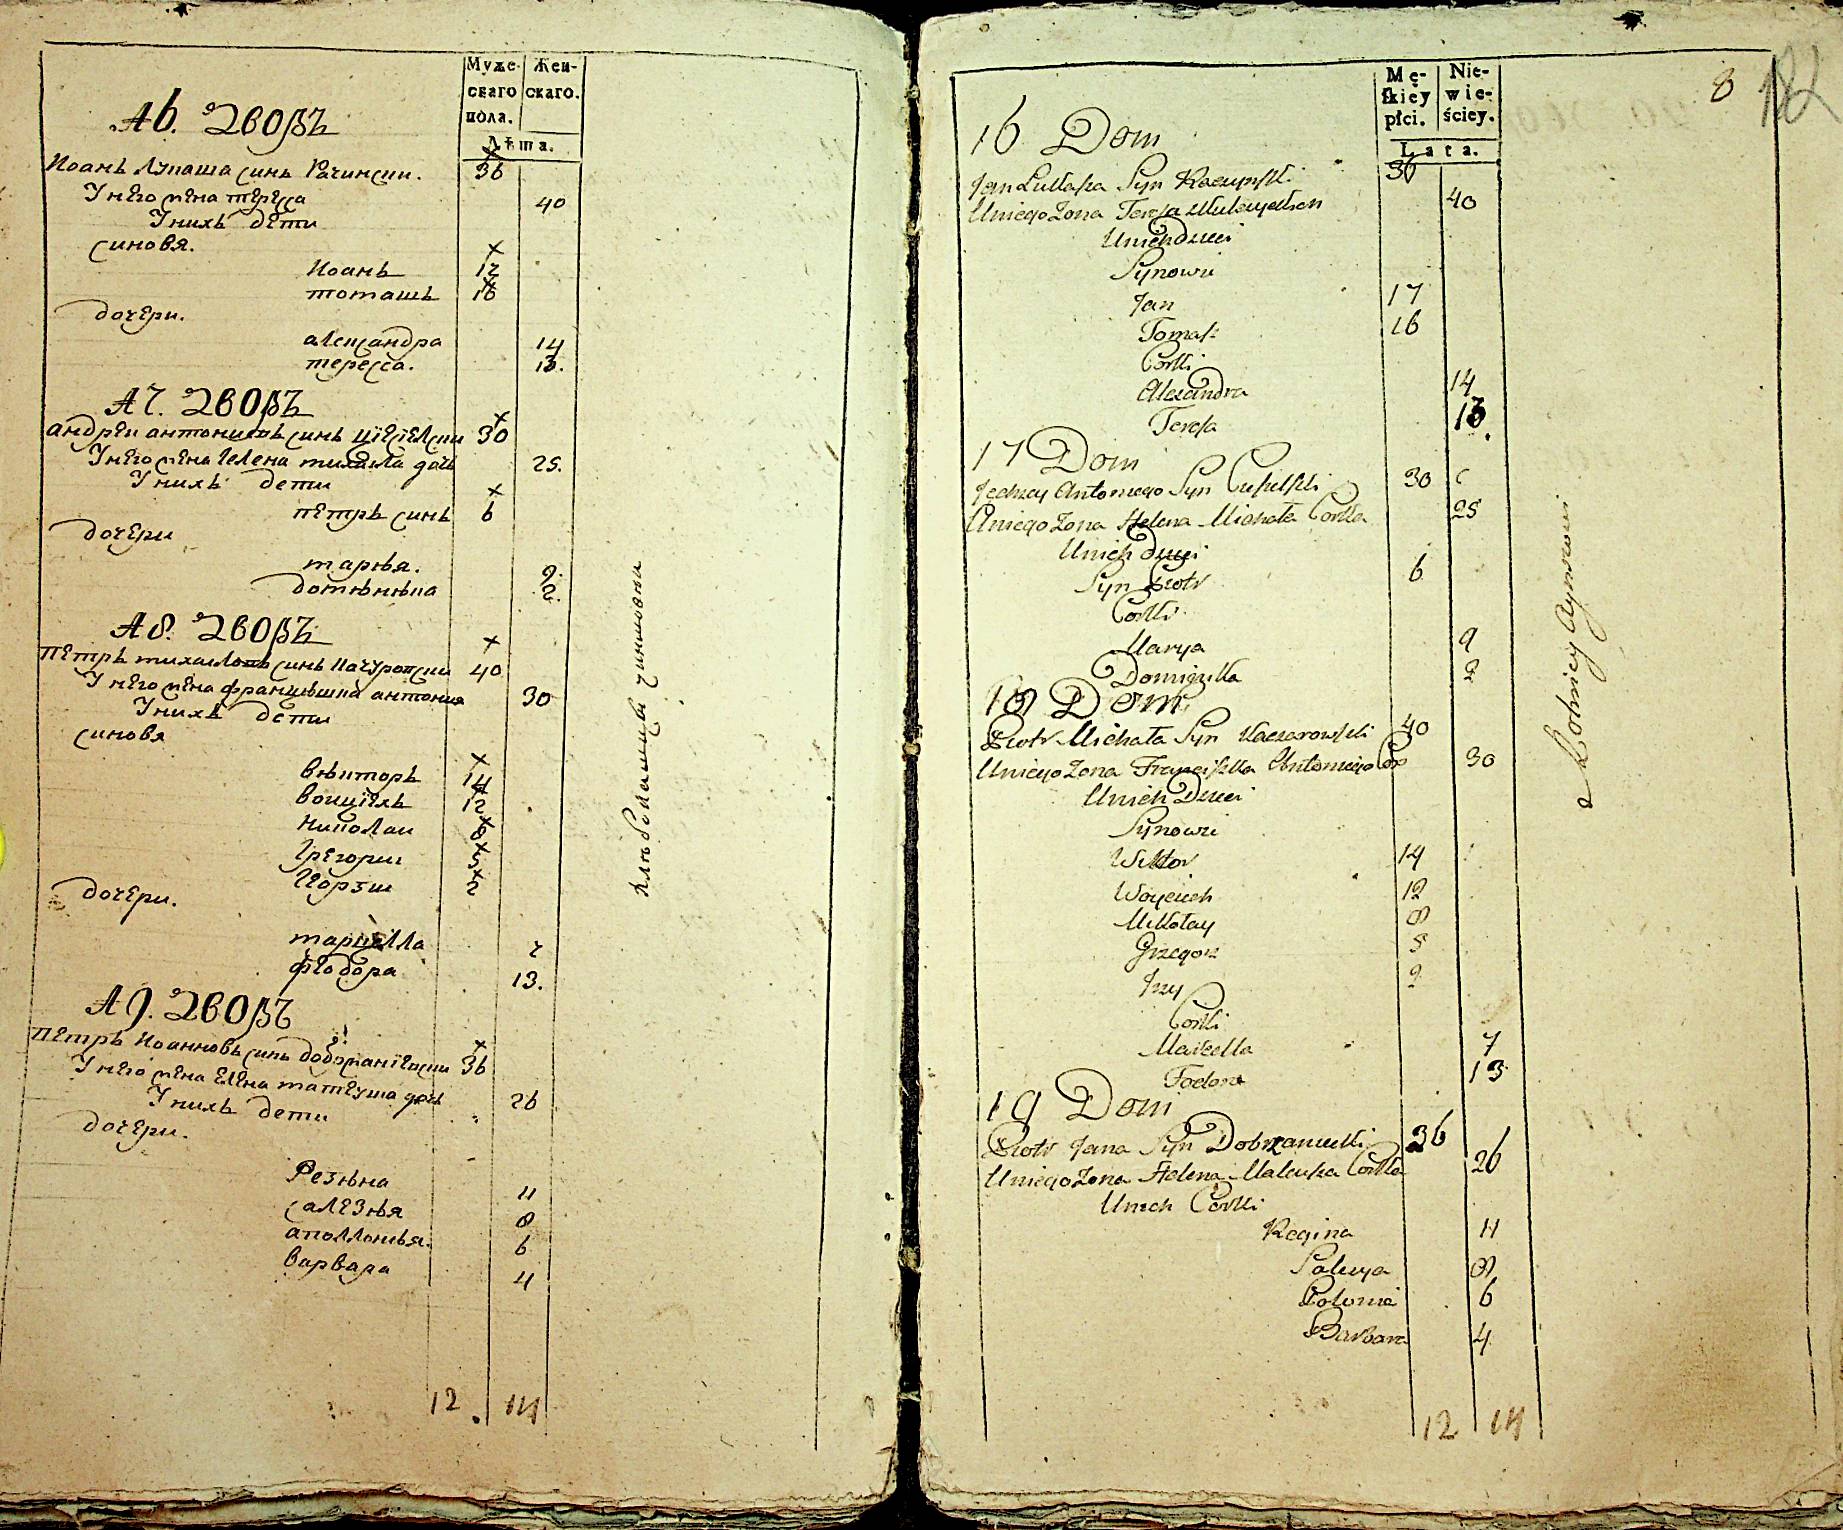 Муже- Жен-
скаго скаго.
пола.
Лѣта.
16. Дворъ
Иоанъ Лукаша синъ Рачински. 36
У него жена тересса 40
У нихъ дети
синовя.
Иоанъ 17
томашъ 16
дочери.
александра 14
тересса. 13.
17. Дворъ
андреи антониевъ синъ циесиелски 30
У него жена Гелена михаила дочь 25.
У нихъ дети
петръ синъ 6
дочери
марья. 9.
доминика 2.
18. Дворъ
петръ михаиловъ синъ Качуровски 40
У него жена францишка антония 30
У нихъ дети
синовя
викторъ 14
воицiехъ 12
Николаи 8
Грегории 5
Iеорзы 2
дочери.
марцелла 7
феодора 13.
19. Дворъ
петръ Иоанновъ синъ добржаниецки 36
У него жена елена матеуша дочь 26
У нихъ дети
дочери.
Резина 11
салезья 8
аполлонья. 6
варвара 4
12. 14
8 182
Mę- Nie-
skiey wie-
płci. ściey.
Lata.
16 Dom
Jan Lukasza Syn Raczynski 36
U niego Zona Teresa 40
U nich Dzieci
Synowie
Jan 17
Tomasz 16
Corki
Alexandra 14
Teresa 13.
17 Dom
Jędrzey Antoniego Syn Ciesielski 30
U niego Zona Helena Michała Corka 25
U nich Dzieci
Syn Piotr 6
Corki
Marya 9
Dominika 2
18 Dom
Piotr Michała Syn Kaczorowski 40
U niego Zona Franciszka Antoniego Co 30
U nich Dzieci
Synowie
Wiktor 14
Woyciech 12
Mikołay 8
Grzegorz 5
Jrzy 2
Corki
Marcella 7
Fodora 13
19 Dom
Piotr Jana Syn Dobrzaniecki 36
U niego Zona Helena Mateusza Corka 26
U nich Corki
Regina 11
Salezya 8
Polonia 6
Barbara 4
12 14